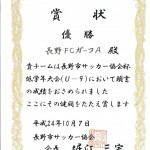 賞状
優勝
長野FCガーフA 殿
貴チームは長野市サッカー協会杯
低学年大会(U-9)において頭書
の成績をおさめられました
ここにその健闘をたたえ賞します
平成24年10月7日
長野市サッカー協会
会長 堀江三定